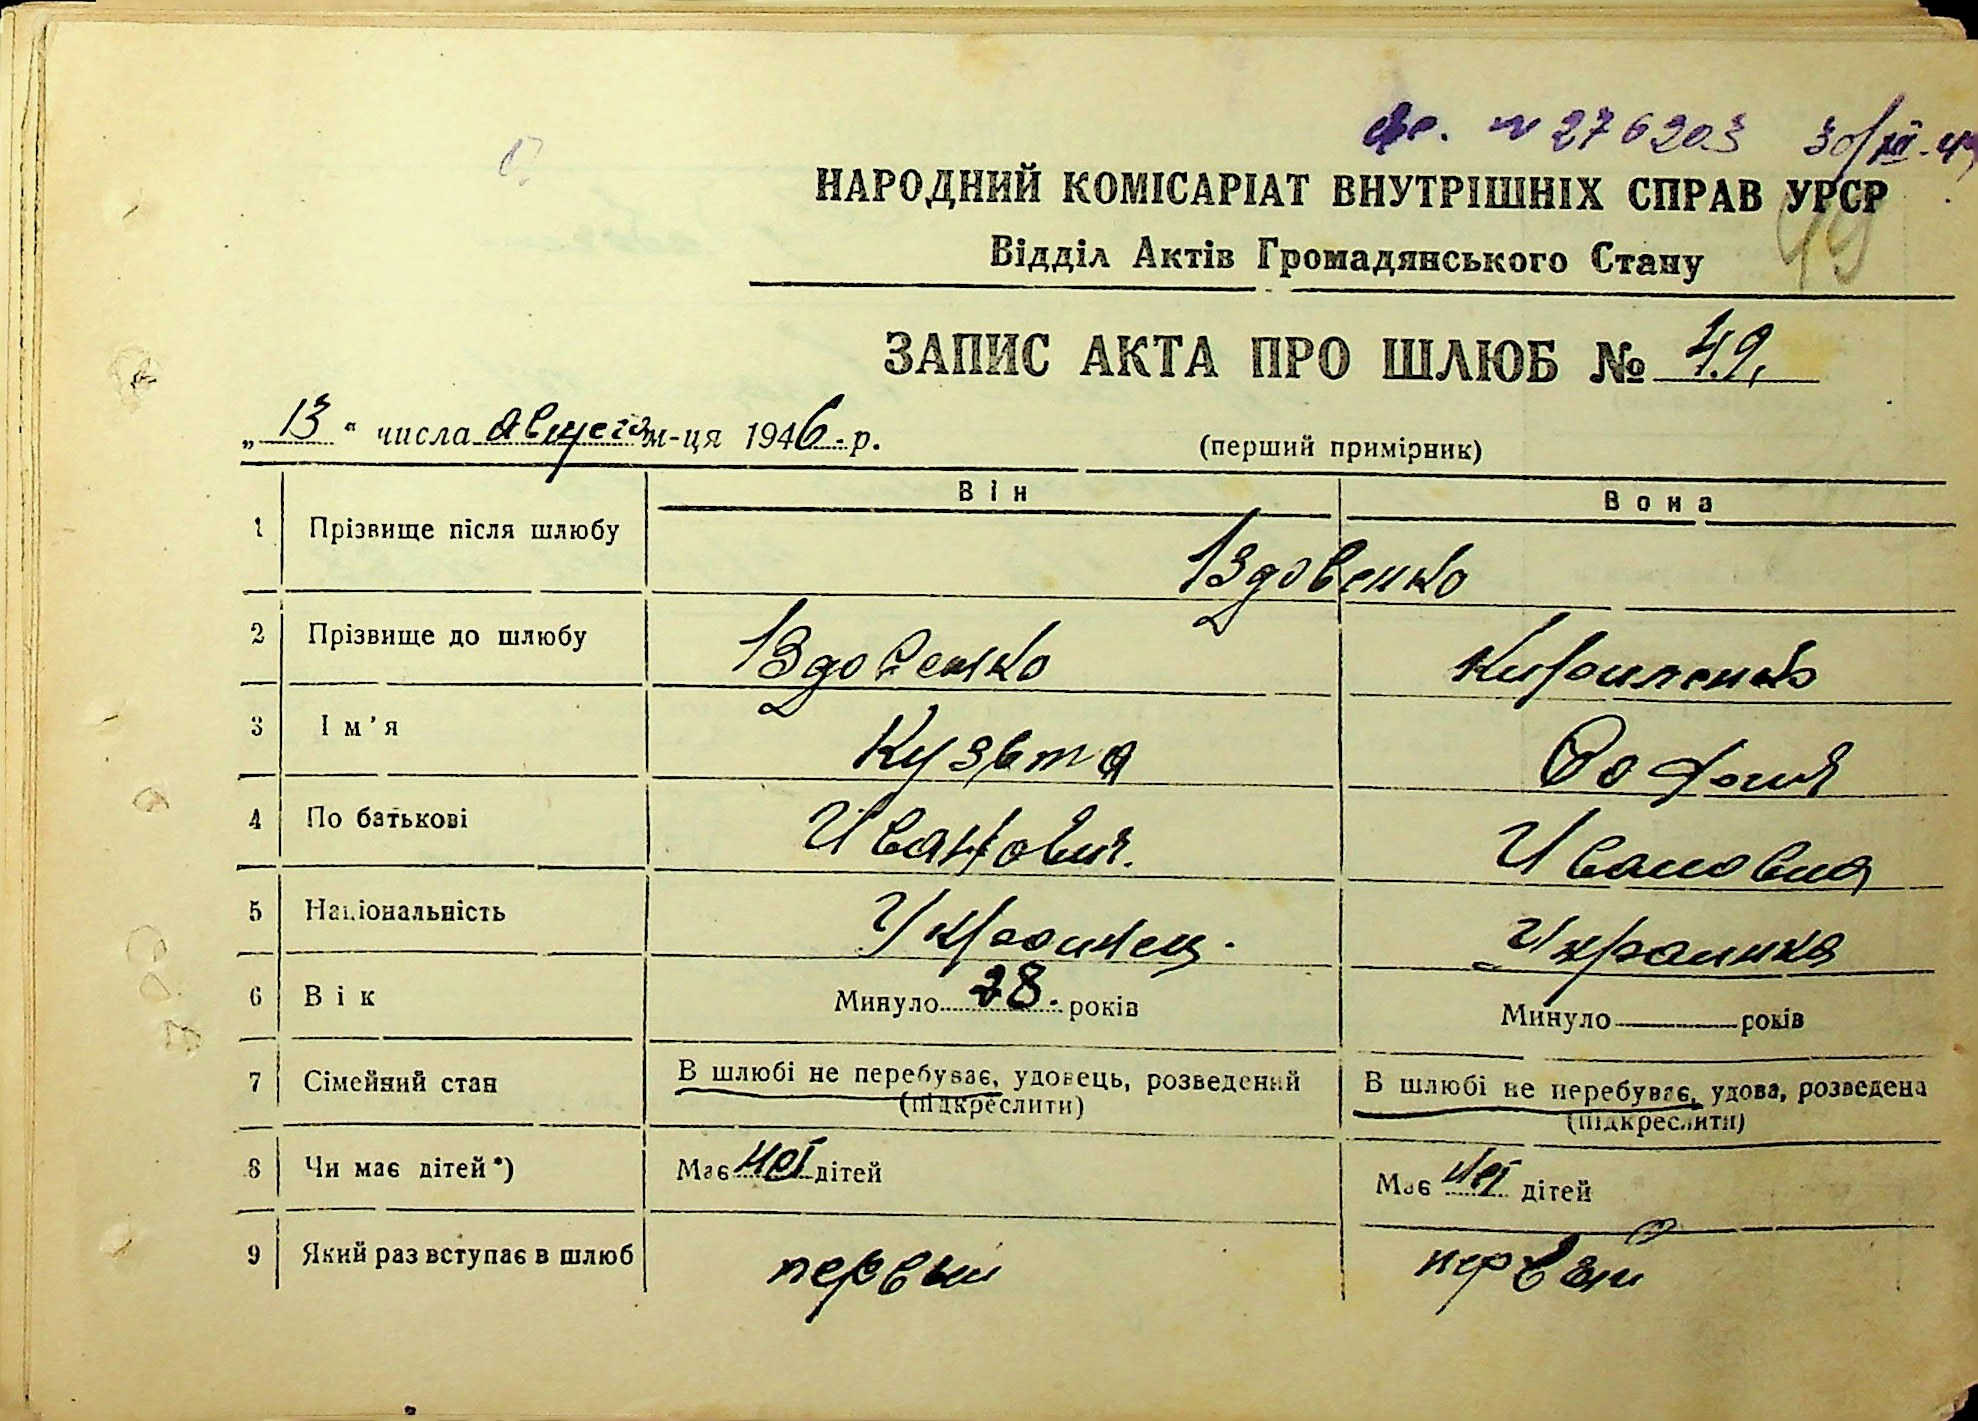 № 276203 30/XII-
НАРОДНИЙ КОМІСАРІАТ ВНУТРІШНІХ СПРАВ УРСР
Відділ Актів Громадянського Стану
49
ЗАПИС АКТА ПРО ШЛЮБ № 49.
„ 13 " числа августа м-ця 1946 р.
(перший примірник)
Він Вона
1 Прізвище після шлюбу Вдовенко
2 Прізвище до шлюбу Вдовенко Кириленко
3 Ім'я Кузьма София
4 По батькові Иванович. Ивановна
5 Національність Украинец. Украинка
6 Вік Минуло 28. років Минуло років
7 Сімейний стан В шлюбі не перебуває, удовець, розведений В шлюбі не перебуває, удова, розведена
(підкреслити) (підкреслити)
8 Чи має дітей*) Має нет дітей Має нет дітей
9 Який раз вступає в шлюб первый первый